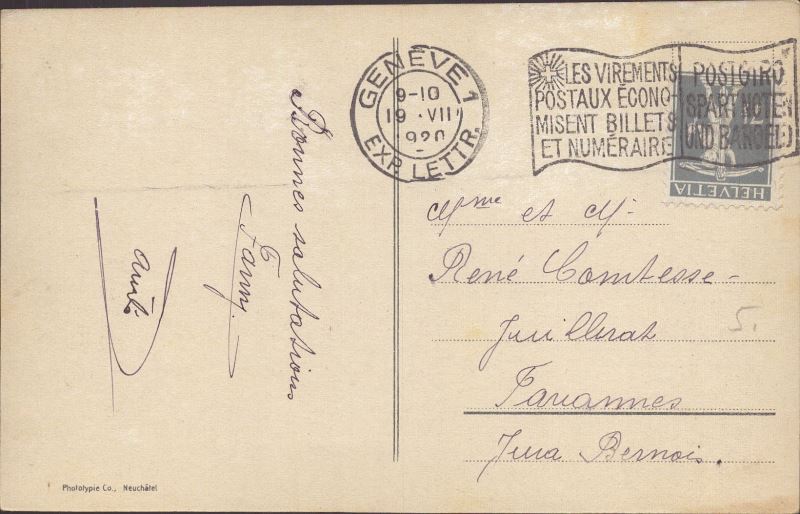 GENÈVE 1
9-10
19 · VII
1920
EXP. LETTR.
LES VIREMENTS
POSTAUX ÉCONO-
MISENT BILLETS
ET NUMÉRAIRE
POSTGIRO
SPART NOTEN
UND BARGELD
HELVETIA
Bonnes salutations
Fanny.
Mme et M.
René Comtesse-
Juillerat
Tavannes
Jura Bernois.
5.
Phototypie Co., Neuchâtel